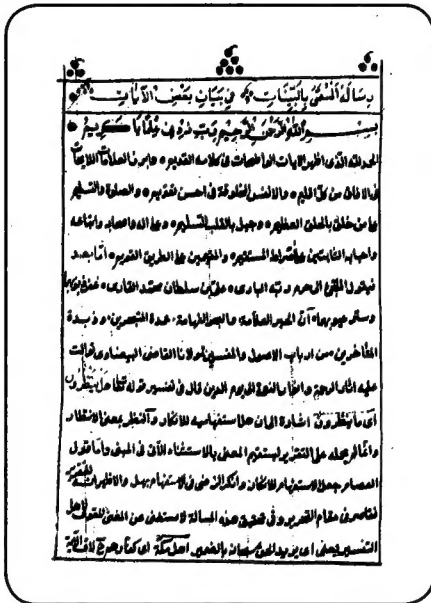 رسالة المسمى بالبينات في بيان بعض الآيات
بسم الله الرحمن الرحيم رب زدني علما يا كريم
الحمد لله الذى اظهر الايات الواضحات فى كلامه القديم وابرز العلامات اللايحات
فى الافاق من كل اقليم والانفس المخلوقة فى احسن تقويم والصلوة والتسليم
على من خلق بالخلق العظيم وجبل بالقلب السليم وعلى اله واصحابه واتباعه
واحبابه الثابتين على الصراط المستقيم والمقيمين على الطريق القويم اما بعد
فيقول الملتجئ الى حرم ربه البارى على بن سلطان محمد القارى غفر ذنوبهما
وستر عيوبهما ان الحبر العلامة والبحر الفهامة عمدة المتبحرين وزبدة
من ارباب الاصول والمفسرين مولانا القاضى البيضاوى توالت
عليه اثار الرحيم وانوار الدين قال فى تفسير قوله تعالى هل ينظرون
اى ما ينظرون اشارة الى ان هل استفهامية للانكار والنظر بمعنى الانتظار
وانما لم يحمله على التقرير ليستقيم المعنى بالاستثناء الآتى فى المبنى واما قول
العصام جعل الاستفهام للانكار وانكر الرضى فى الاستفهام بهل والاظهر انه للتقرير
فقاصر فى مقام التحرير وفى تحقيق هذه المسالة لاستغنى عن المغنى للقول لاهل
التفسير يعنى اى يريد الحق سبحانه بالضمير اهل مكة اى كفارهم